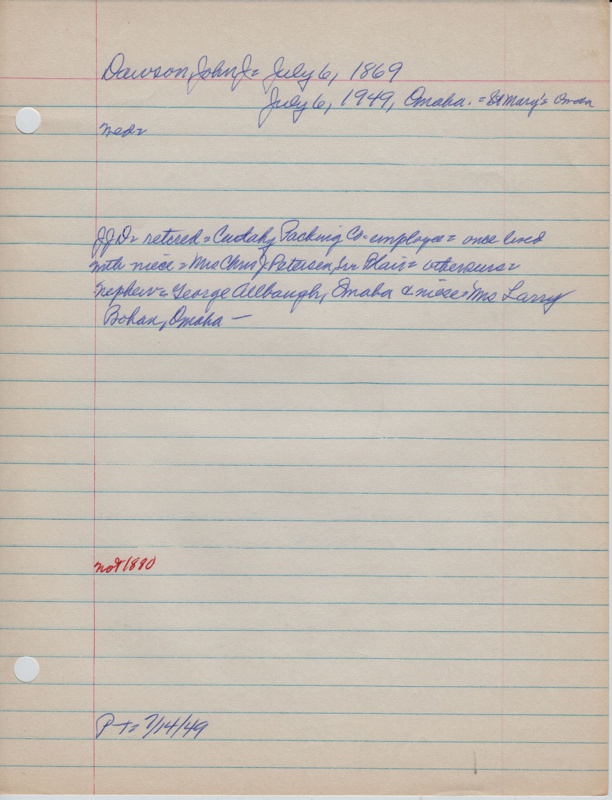 Dawson, John J = July 6, 1869
July 6, 1949, Omaha. = St Mary's Omaha
Med =
JJD = retired = Cudahy Packing Co = employee = once lived
with niece = Mrs Chris J Petersen, Sr Blair = other surs =
Nephew = George Allbaugh, Omaha & niece = Mrs Larry
Bohan, Omaha —
not 1880
P-T = 7/14/49